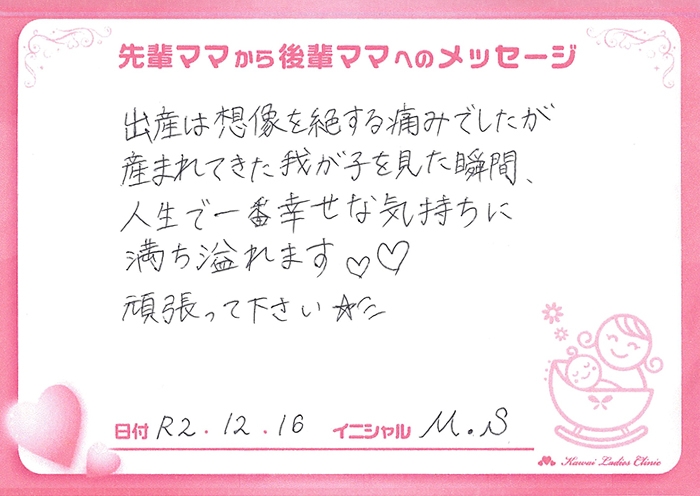 先輩ママから後輩ママへのメッセージ
出産は想像を絶する痛みでしたが
産まれてきた我が子を見た瞬間、
人生で一番幸せな気持ちに
満ち溢れます♡♡
頑張って下さい☆彡
日付 R2.12.16 イニシャル M.S
Kawai Ladies Clinic